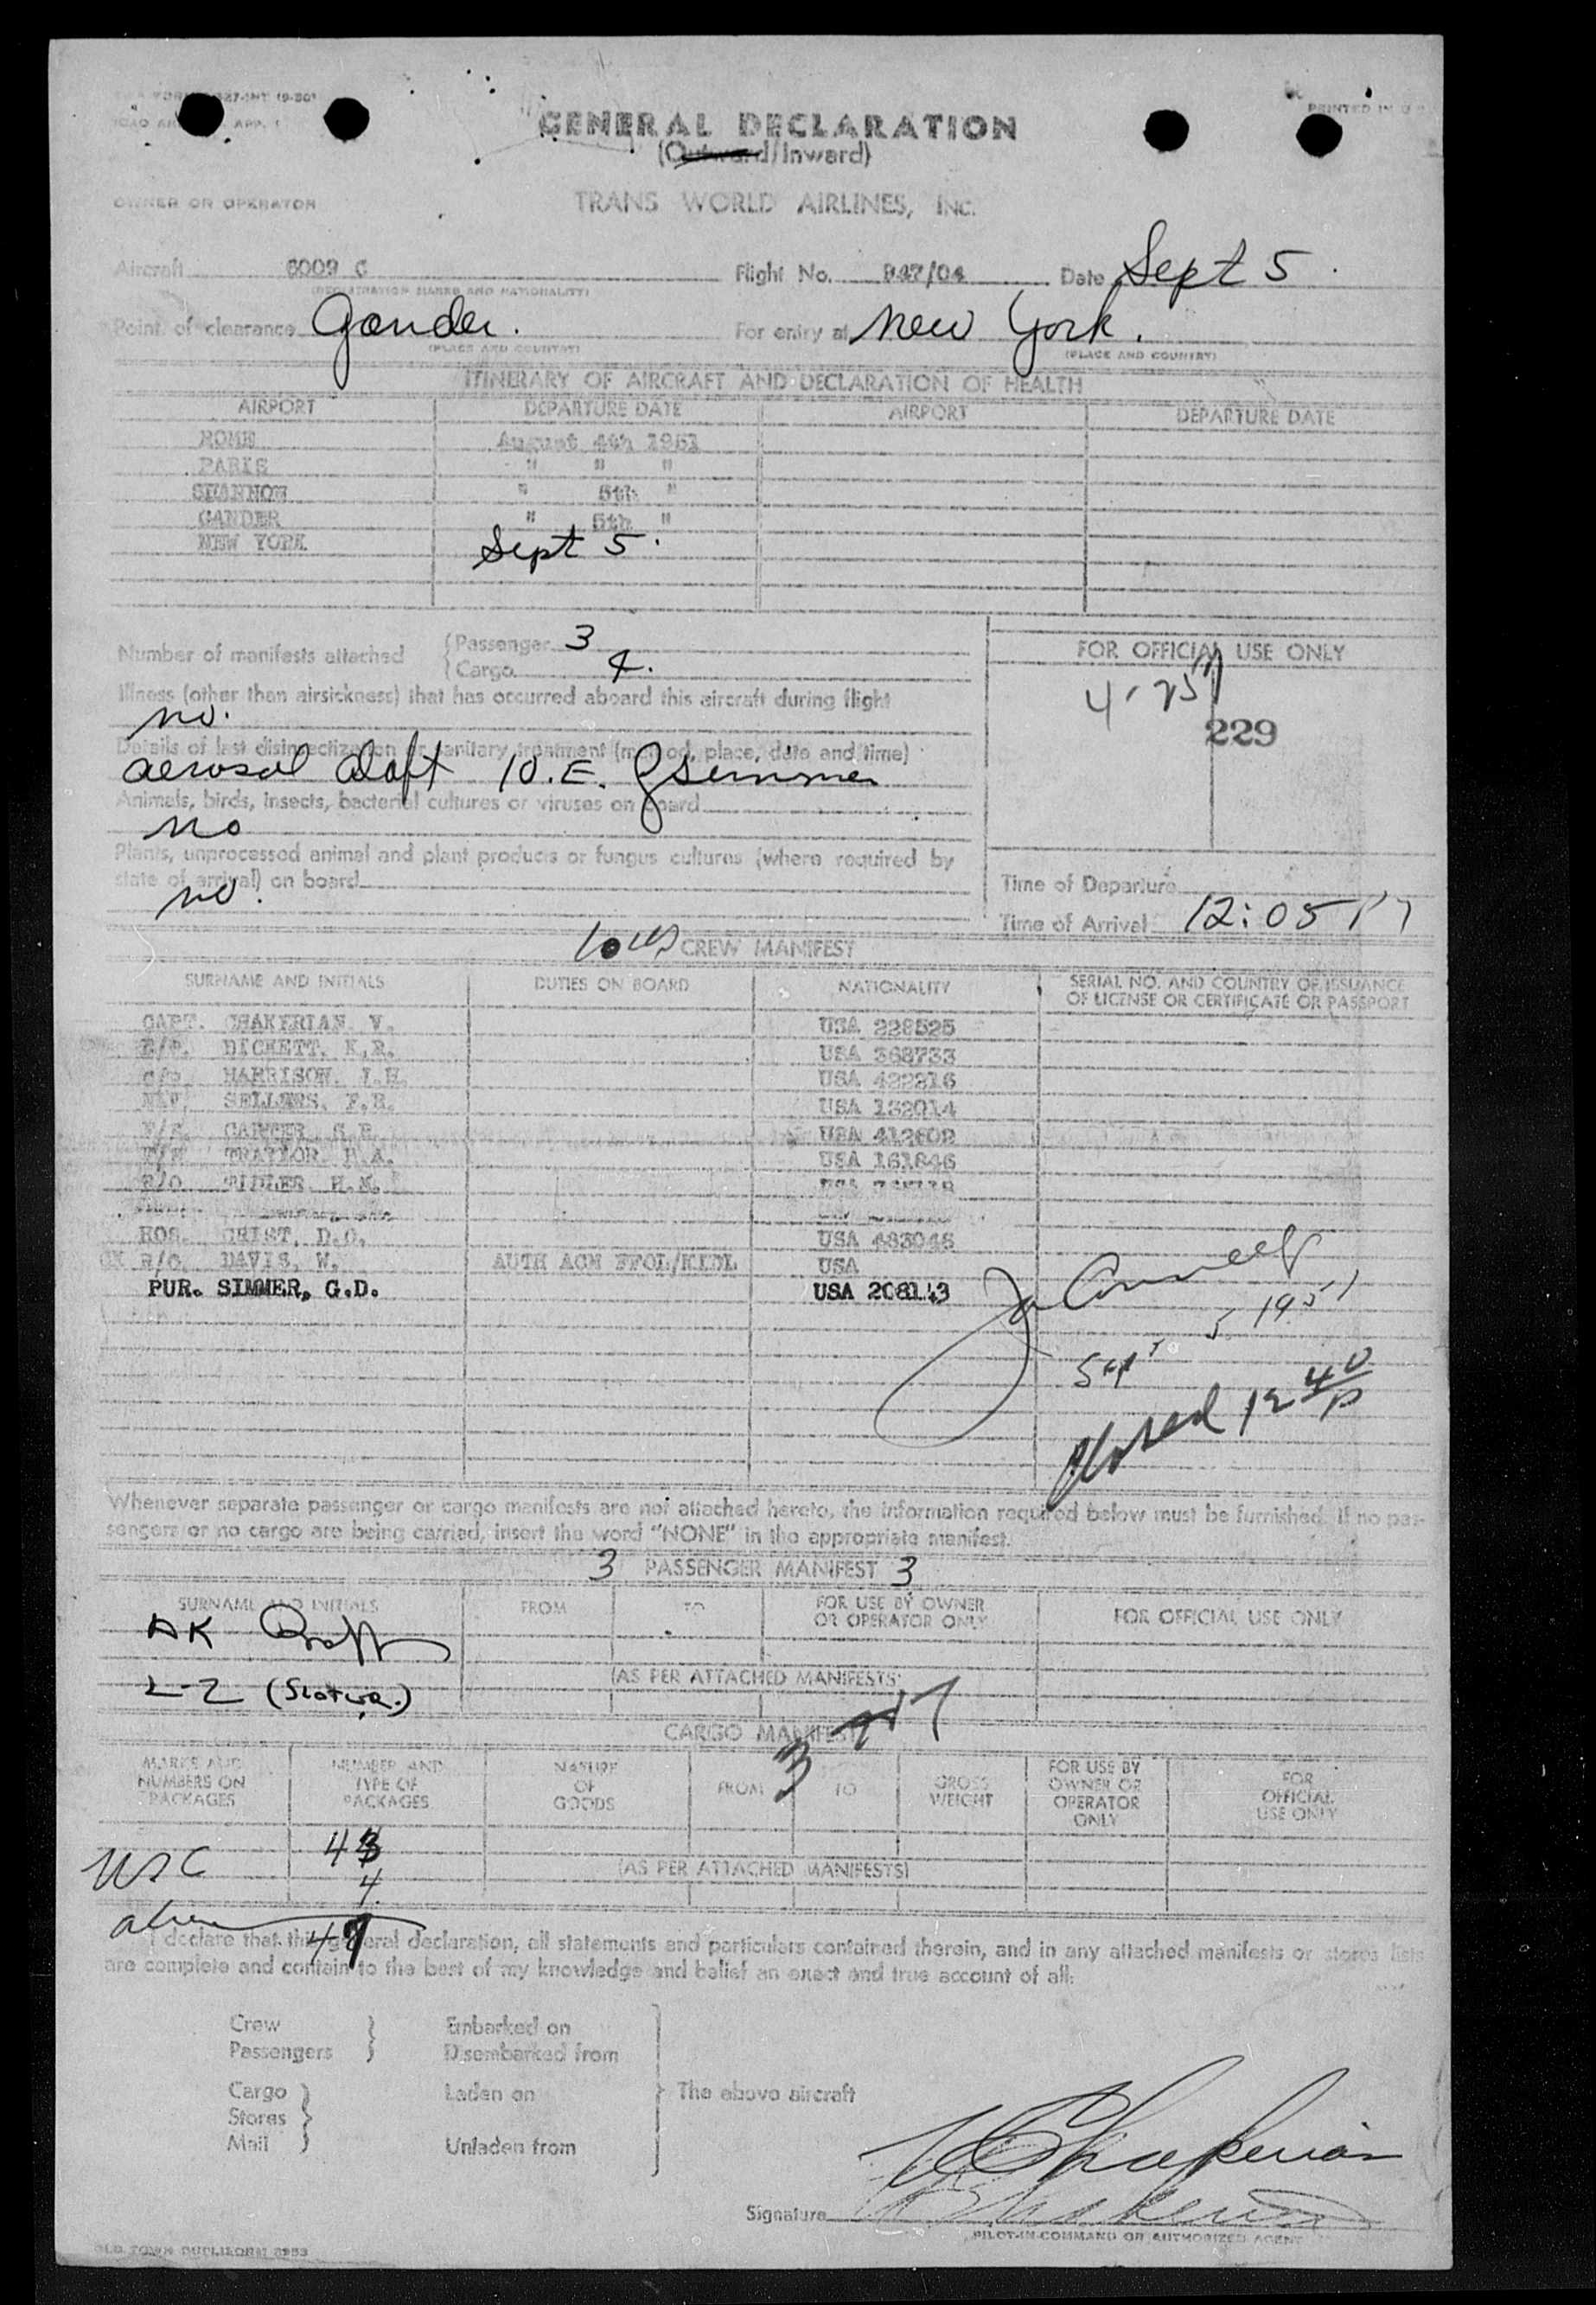 GENERAL DECLARATION
(Outward/Inward)
PRINTED IN
OWNER OR OPERATOR
TRANS WORLD AIRLINES, INC.
Aircraft 6009 C Flight No. 947/04 Date Sept 5.
(REGISTRATION MARKS AND NATIONALITY)
Point of clearance Gander. For entry at New York.
(PLACE AND COUNTRY) (PLACE AND COUNTRY)
ITINERARY OF AIRCRAFT AND DECLARATION OF HEALTH
AIRPORT DEPARTURE DATE AIRPORT DEPARTURE DATE
ROME August 4th 1951
PARIS " " "
SHANNON " 5th "
GANDER " 5th "
NEW YORK Sept 5.
Number of manifests attached Passenger 3
Cargo 4.
FOR OFFICIAL USE ONLY
229
Illness (other than airsickness) that has occurred aboard this aircraft during flight
no.
Details of last disinsectization or sanitary treatment (method, place, date and time)
aerosol
Animals, birds, insects, bacterial cultures or viruses on board
no
Plants, unprocessed animal and plant products or fungus cultures (where required by
state of arrival) on board
no.
Time of Departure
Time of Arrival 12:05
CREW MANIFEST
SURNAME AND INITIALS DUTIES ON BOARD NATIONALITY SERIAL NO. AND COUNTRY OF ISSUANCE
OF LICENSE OR CERTIFICATE OR PASSPORT
CAPT. CHAKERIAN V. USA 228525
DICKETT. K.R. USA 368733
HARRISON. USA 422216
SELLERS. F.R. USA 132014
CARTER USA 412602
TRAYLOR. USA 161846
R/O H.N. USA
HOS. CRIST. D.O. USA 483045
R/O. DAVIS. W. AUTH ACM USA
PUR. SIMMER, G.D. USA 208143
Sept 5 1951
12 40
Whenever separate passenger or cargo manifests are not attached hereto, the information required below must be furnished. If no pas-
sengers or no cargo are being carried, insert the word "NONE" in the appropriate manifest.
3 PASSENGER MANIFEST 3
SURNAME AND INITIALS FROM TO FOR USE BY OWNER
OR OPERATOR ONLY FOR OFFICIAL USE ONLY
(AS PER ATTACHED MANIFESTS)
L-2
CARGO MANIFEST
3
MARKS AND
NUMBERS ON
PACKAGES
NUMBER AND
TYPE OF
PACKAGES
NATURE
OF
GOODS
FROM
TO
GROSS
WEIGHT
FOR USE BY
OWNER OR
OPERATOR
ONLY
FOR
OFFICIAL
USE ONLY
USC 43
4
(AS PER ATTACHED MANIFESTS)
alien
47
I declare that this general declaration, all statements and particulars contained therein, and in any attached manifests or stores lists
are complete and contain to the best of my knowledge and belief an exact and true account of all:
Crew Embarked on
Passengers Disembarked from
Cargo Laden on The above aircraft
Stores
Mail Unladen from
V Chakerian
Signature
PILOT-IN-COMMAND OR AUTHORIZED AGENT